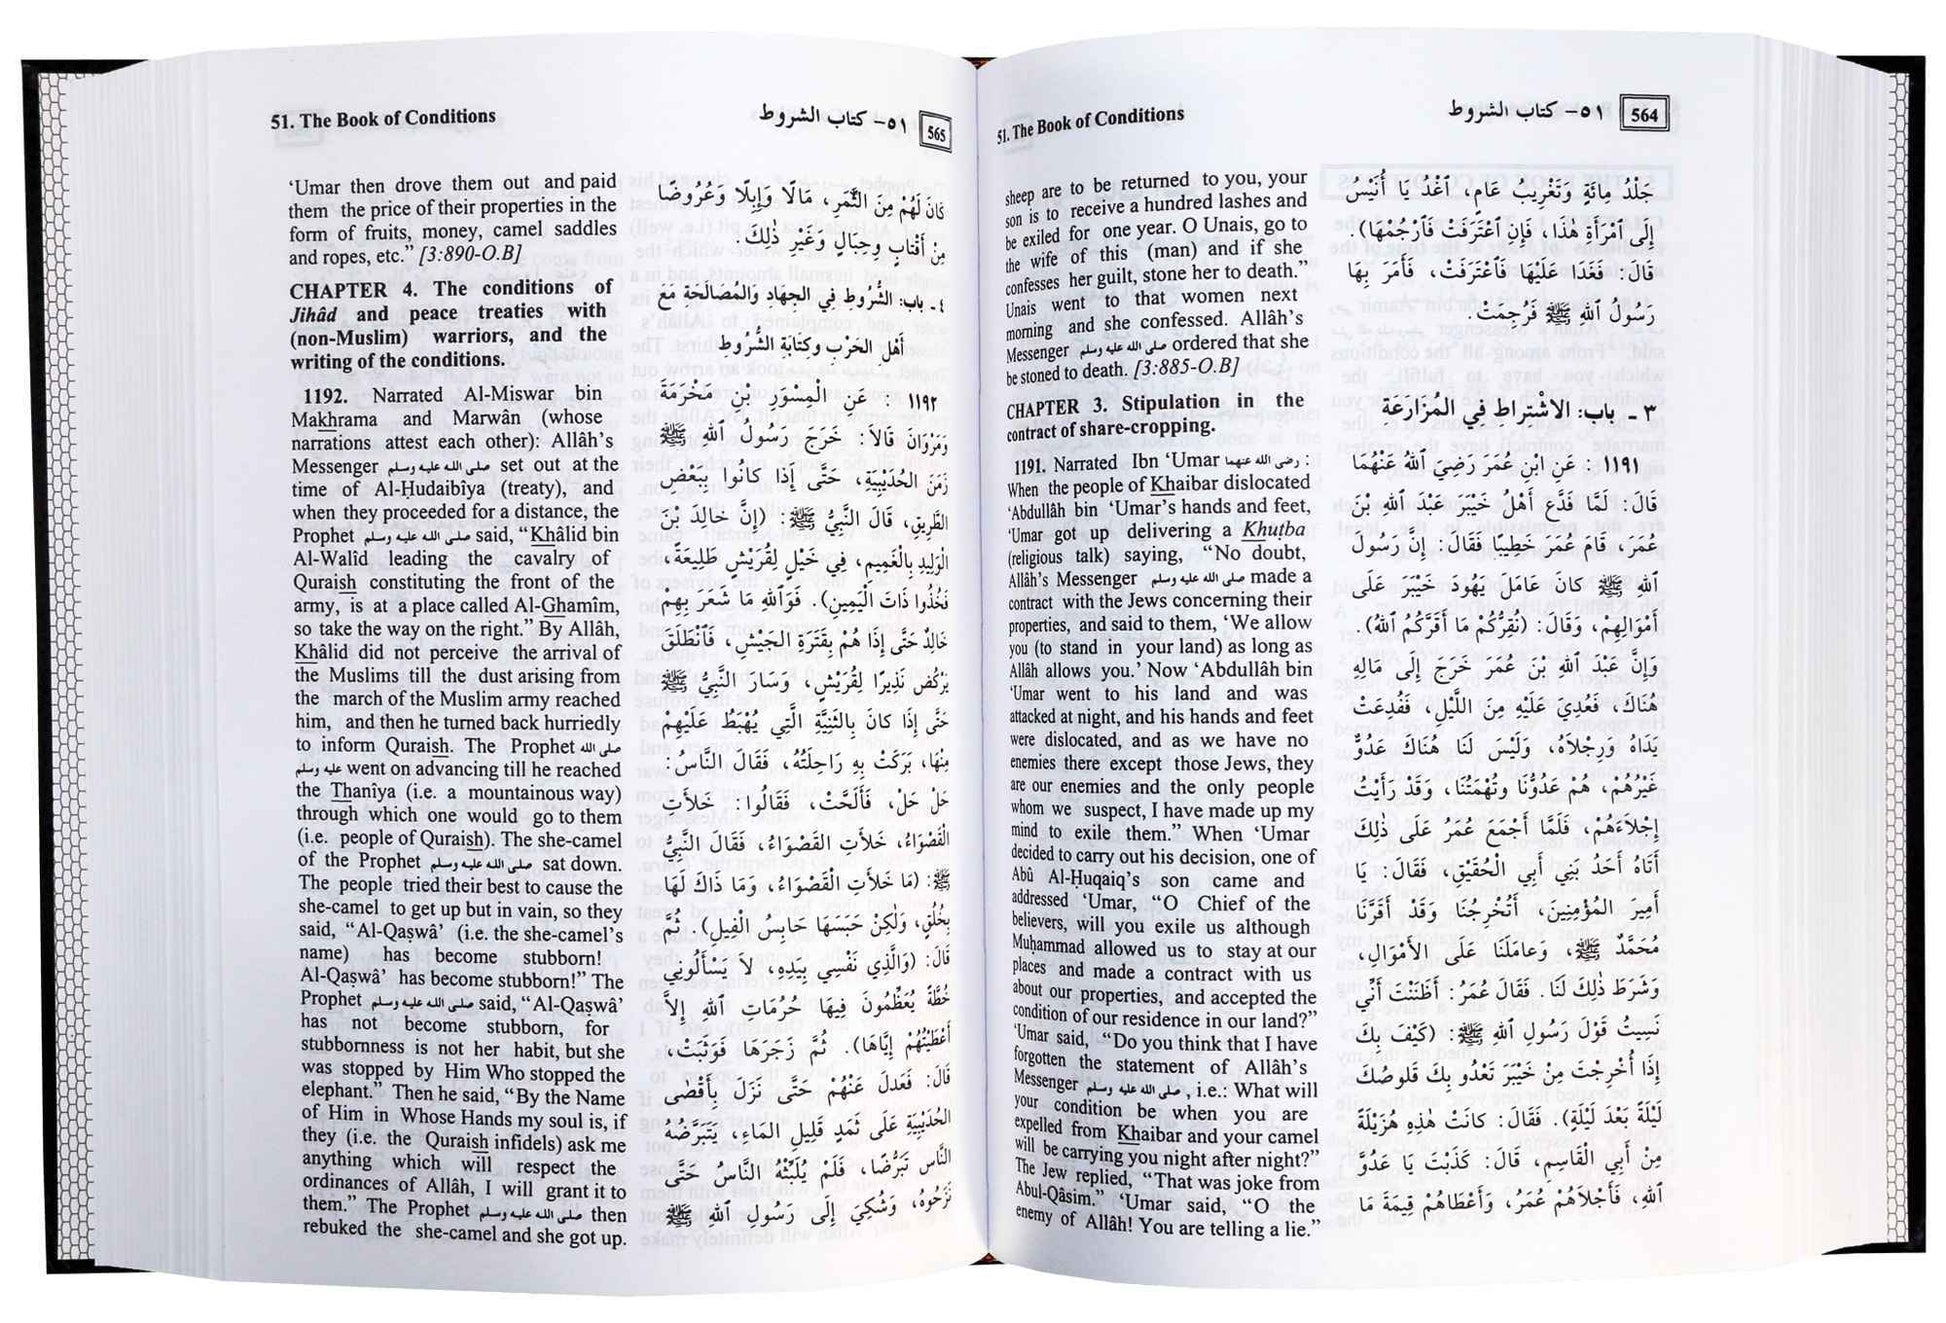 51. The Book of Conditions
٥١- كتاب الشروط
564
sheep are to be returned to you, your
son is to receive a hundred lashes and
be exiled for one year. O Unais, go to
the wife of this (man) and if she
confesses her guilt, stone her to death.”
Unais went to that women next
morning and she confessed. Allâh’s
Messenger صلى الله عليه وسلم ordered that she
be stoned to death. [3:885-O.B]
CHAPTER 3. Stipulation in the
contract of share-cropping.
1191. Narrated Ibn ‘Umar رضى الله عنهما :
When the people of Khaibar dislocated
‘Abdullâh bin ‘Umar’s hands and feet,
‘Umar got up delivering a Khuṭba
(religious talk) saying, “No doubt,
Allâh’s Messenger صلى الله عليه وسلم made a
contract with the Jews concerning their
properties, and said to them, ‘We allow
you (to stand in your land) as long as
Allâh allows you.’ Now ‘Abdullâh bin
‘Umar went to his land and was
attacked at night, and his hands and feet
were dislocated, and as we have no
enemies there except those Jews, they
are our enemies and the only people
whom we suspect, I have made up my
mind to exile them.” When ‘Umar
decided to carry out his decision, one of
Abû Al-Ḥuqaiq’s son came and
addressed ‘Umar, “O Chief of the
believers, will you exile us although
Muḥammad allowed us to stay at our
places and made a contract with us
about our properties, and accepted the
condition of our residence in our land?”
‘Umar said, “Do you think that I have
forgotten the statement of Allâh’s
Messenger صلى الله عليه وسلم , i.e.: What will
your condition be when you are
expelled from Khaibar and your camel
will be carrying you night after night?”
The Jew replied, “That was joke from
Abul-Qâsim.” ‘Umar said, “O the
enemy of Allâh! You are telling a lie.”
جَلْدُ مِائَةٍ وَتَغْرِيبُ عَامٍ، ٱغْدُ يَا أُنَيْسُ
إِلَى ٱمْرَأَةِ هٰذَا، فَإِنِ ٱعْتَرَفَتْ فَٱرْجُمْهَا).
قَالَ: فَغَدَا عَلَيْهَا فَٱعْتَرَفَتْ، فَأَمَرَ بِهَا
رَسُولُ ٱللهِ ﷺ فَرُجِمَتْ.
٣ ـ باب: الاشْتِراط فِي المُزَارَعَةِ
١١٩١ : عَنِ ابْنِ عُمَرَ رَضِيَ ٱللهُ عَنْهُمَا
قَالَ: لَمَّا فَدَعَ أَهْلُ خَيْبَرَ عَبْدَ ٱللهِ بْنَ
عُمَرَ، قَامَ عُمَرُ خَطِيبًا فَقَالَ: إِنَّ رَسُولَ
ٱللهِ ﷺ كَانَ عَامَلَ يَهُودَ خَيْبَرَ عَلَى
أَمْوَالِهِمْ، وَقَالَ: (نُقِرُّكُمْ مَا أَقَرَّكُمُ ٱللهُ).
وَإِنَّ عَبْدَ ٱللهِ بْنَ عُمَرَ خَرَجَ إِلَى مَالِهِ
هُنَاكَ، فَعُدِيَ عَلَيْهِ مِنَ اللَّيْلِ، فَفُدِعَتْ
يَدَاهُ وَرِجْلَاهُ، وَلَيْسَ لَنَا هُنَاكَ عَدُوٌّ
غَيْرُهُمْ، هُمْ عَدُوُّنَا وَتُهْمَتُنَا، وَقَدْ رَأَيْتُ
إِجْلَاءَهُمْ، فَلَمَّا أَجْمَعَ عُمَرُ عَلَى ذٰلِكَ
أَتَاهُ أَحَدُ بَنِي أَبِي الْحُقَيْقِ، فَقَالَ: يَا
أَمِيرَ المُؤْمِنِينَ، أَتُخْرِجُنَا وَقَدْ أَقَرَّنَا
مُحَمَّدٌ ﷺ، وَعامَلَنَا عَلَى الأَمْوَالِ،
وَشَرَطَ ذٰلِكَ لَنَا. فَقَالَ عُمَرُ: أَظَنَنْتَ أَنِّي
نَسِيتُ قَوْلَ رَسُولِ ٱللهِ ﷺ: (كَيْفَ بِكَ
إِذَا أُخْرِجْتَ مِنْ خَيْبَرَ تَعْدُو بِكَ قَلُوصُكَ
لَيْلَةً بَعْدَ لَيْلَةٍ). فَقَالَ: كَانَتْ هٰذِهِ هُزَيْلَةً
مِنْ أَبِي الْقَاسِمِ، قَالَ: كَذَبْتَ يَا عَدُوَّ
ٱللهِ، فَأَجْلَاهُمْ عُمَرُ، وَأَعْطَاهُمْ قِيمَةَ مَا
51. The Book of Conditions
٥١- كتاب الشروط
565
‘Umar then drove them out and paid
them the price of their properties in the
form of fruits, money, camel saddles
and ropes, etc.” [3:890-O.B]
CHAPTER 4. The conditions of
Jihâd and peace treaties with
(non-Muslim) warriors, and the
writing of the conditions.
1192. Narrated Al-Miswar bin
Makhrama and Marwân (whose
narrations attest each other): Allâh’s
Messenger صلى الله عليه وسلم set out at the
time of Al-Ḥudaibîya (treaty), and
when they proceeded for a distance, the
Prophet صلى الله عليه وسلم said, “Khâlid bin
Al-Walîd leading the cavalry of
Quraish constituting the front of the
army, is at a place called Al-Ghamîm,
so take the way on the right.” By Allâh,
Khâlid did not perceive the arrival of
the Muslims till the dust arising from
the march of the Muslim army reached
him, and then he turned back hurriedly
to inform Quraish. The Prophet صلى الله
عليه وسلم went on advancing till he reached
the Thanîya (i.e. a mountainous way)
through which one would go to them
(i.e. people of Quraish). The she-camel
of the Prophet صلى الله عليه وسلم sat down.
The people tried their best to cause the
she-camel to get up but in vain, so they
said, “Al-Qaṣwâ’ (i.e. the she-camel’s
name) has become stubborn!
Al-Qaṣwâ’ has become stubborn!” The
Prophet صلى الله عليه وسلم said, “Al-Qaṣwâ’
has not become stubborn, for
stubbornness is not her habit, but she
was stopped by Him Who stopped the
elephant.” Then he said, “By the Name
of Him in Whose Hands my soul is, if
they (i.e. the Quraish infidels) ask me
anything which will respect the
ordinances of Allâh, I will grant it to
them.” The Prophet صلى الله عليه وسلم then
rebuked the she-camel and she got up.
كَانَ لَهُمْ مِنَ الثَّمَرِ، مَالًا وَإِبِلًا وَعُرُوضًا
مِنْ أَقْتَابٍ وَحِبَالٍ وَغَيْرِ ذٰلِكَ.
٤ ـ باب: الشُّرُوط فِي الجِهَادِ وَالمُصَالَحَةِ مَعَ
أَهْلِ الحَرْبِ وَكِتَابَةِ الشُّرُوطِ
١١٩٢ : عَنِ الْمِسْوَرِ بْنِ مَخْرَمَةَ
وَمَرْوَانَ قَالاَ: خَرَجَ رَسُولُ ٱللهِ ﷺ
زَمَنَ الحُدَيْبِيَةِ، حَتَّى إِذَا كانُوا بِبَعْضِ
الطَّرِيقِ، قَالَ النَّبِيُّ ﷺ: (إِنَّ خَالِدَ بْنَ
الْوَلِيدِ بِالْغَمِيمِ، فِي خَيْلٍ لِقُرَيْشٍ طَلِيعَةً،
فَخُذُوا ذَاتَ الْيَمِينِ). فَوَٱللهِ مَا شَعَرَ بِهِمْ
خَالِدٌ حَتَّى إِذَا هُمْ بِقَتَرَةِ الجَيْشِ، فَٱنْطَلَقَ
يَرْكُضُ نَذِيرًا لِقُرَيْشٍ، وَسَارَ النَّبِيُّ ﷺ
حَتَّى إِذَا كانَ بِالثَّنِيَّةِ الَّتِي يُهْبَطُ عَلَيْهِمْ
مِنْهَا، بَرَكَتْ بِهِ رَاحِلَتُهُ، فَقَالَ النَّاسُ:
حَلْ حَلْ، فَأَلَحَّتْ، فَقَالُوا: خَلأَتِ
الْقَصْوَاءُ، خَلأَتِ القَصْوَاءُ، فَقَالَ النَّبِيُّ
ﷺ: (مَا خَلأَتِ الْقَصْوَاءُ، وَمَا ذَاكَ لَهَا
بِخُلُقٍ، وَلٰكِنْ حَبَسَهَا حَابِسُ الْفِيلِ). ثُمَّ
قَالَ: (وَالَّذِي نَفْسِي بِيَدِهِ، لاَ يَسْأَلُونِي
خُطَّةً يُعَظِّمُونَ فِيهَا حُرُمَاتِ ٱللهِ إِلاَّ
أَعْطَيْتُهُمْ إِيَّاهَا). ثُمَّ زَجَرَهَا فَوَثَبَتْ،
قَالَ: فَعَدَلَ عَنْهُمْ حَتَّى نَزَلَ بِأَقْصَى
الحُدَيْبِيَةِ عَلَى ثَمَدٍ قَلِيلِ المَاءِ، يَتَبَرَّضُهُ
النَّاسُ تَبَرُّضًا، فَلَمْ يُلَبِّثْهُ النَّاسُ حَتَّى
نَزَحُوهُ، وَشُكِيَ إِلَى رَسُولِ ٱللهِ ﷺ